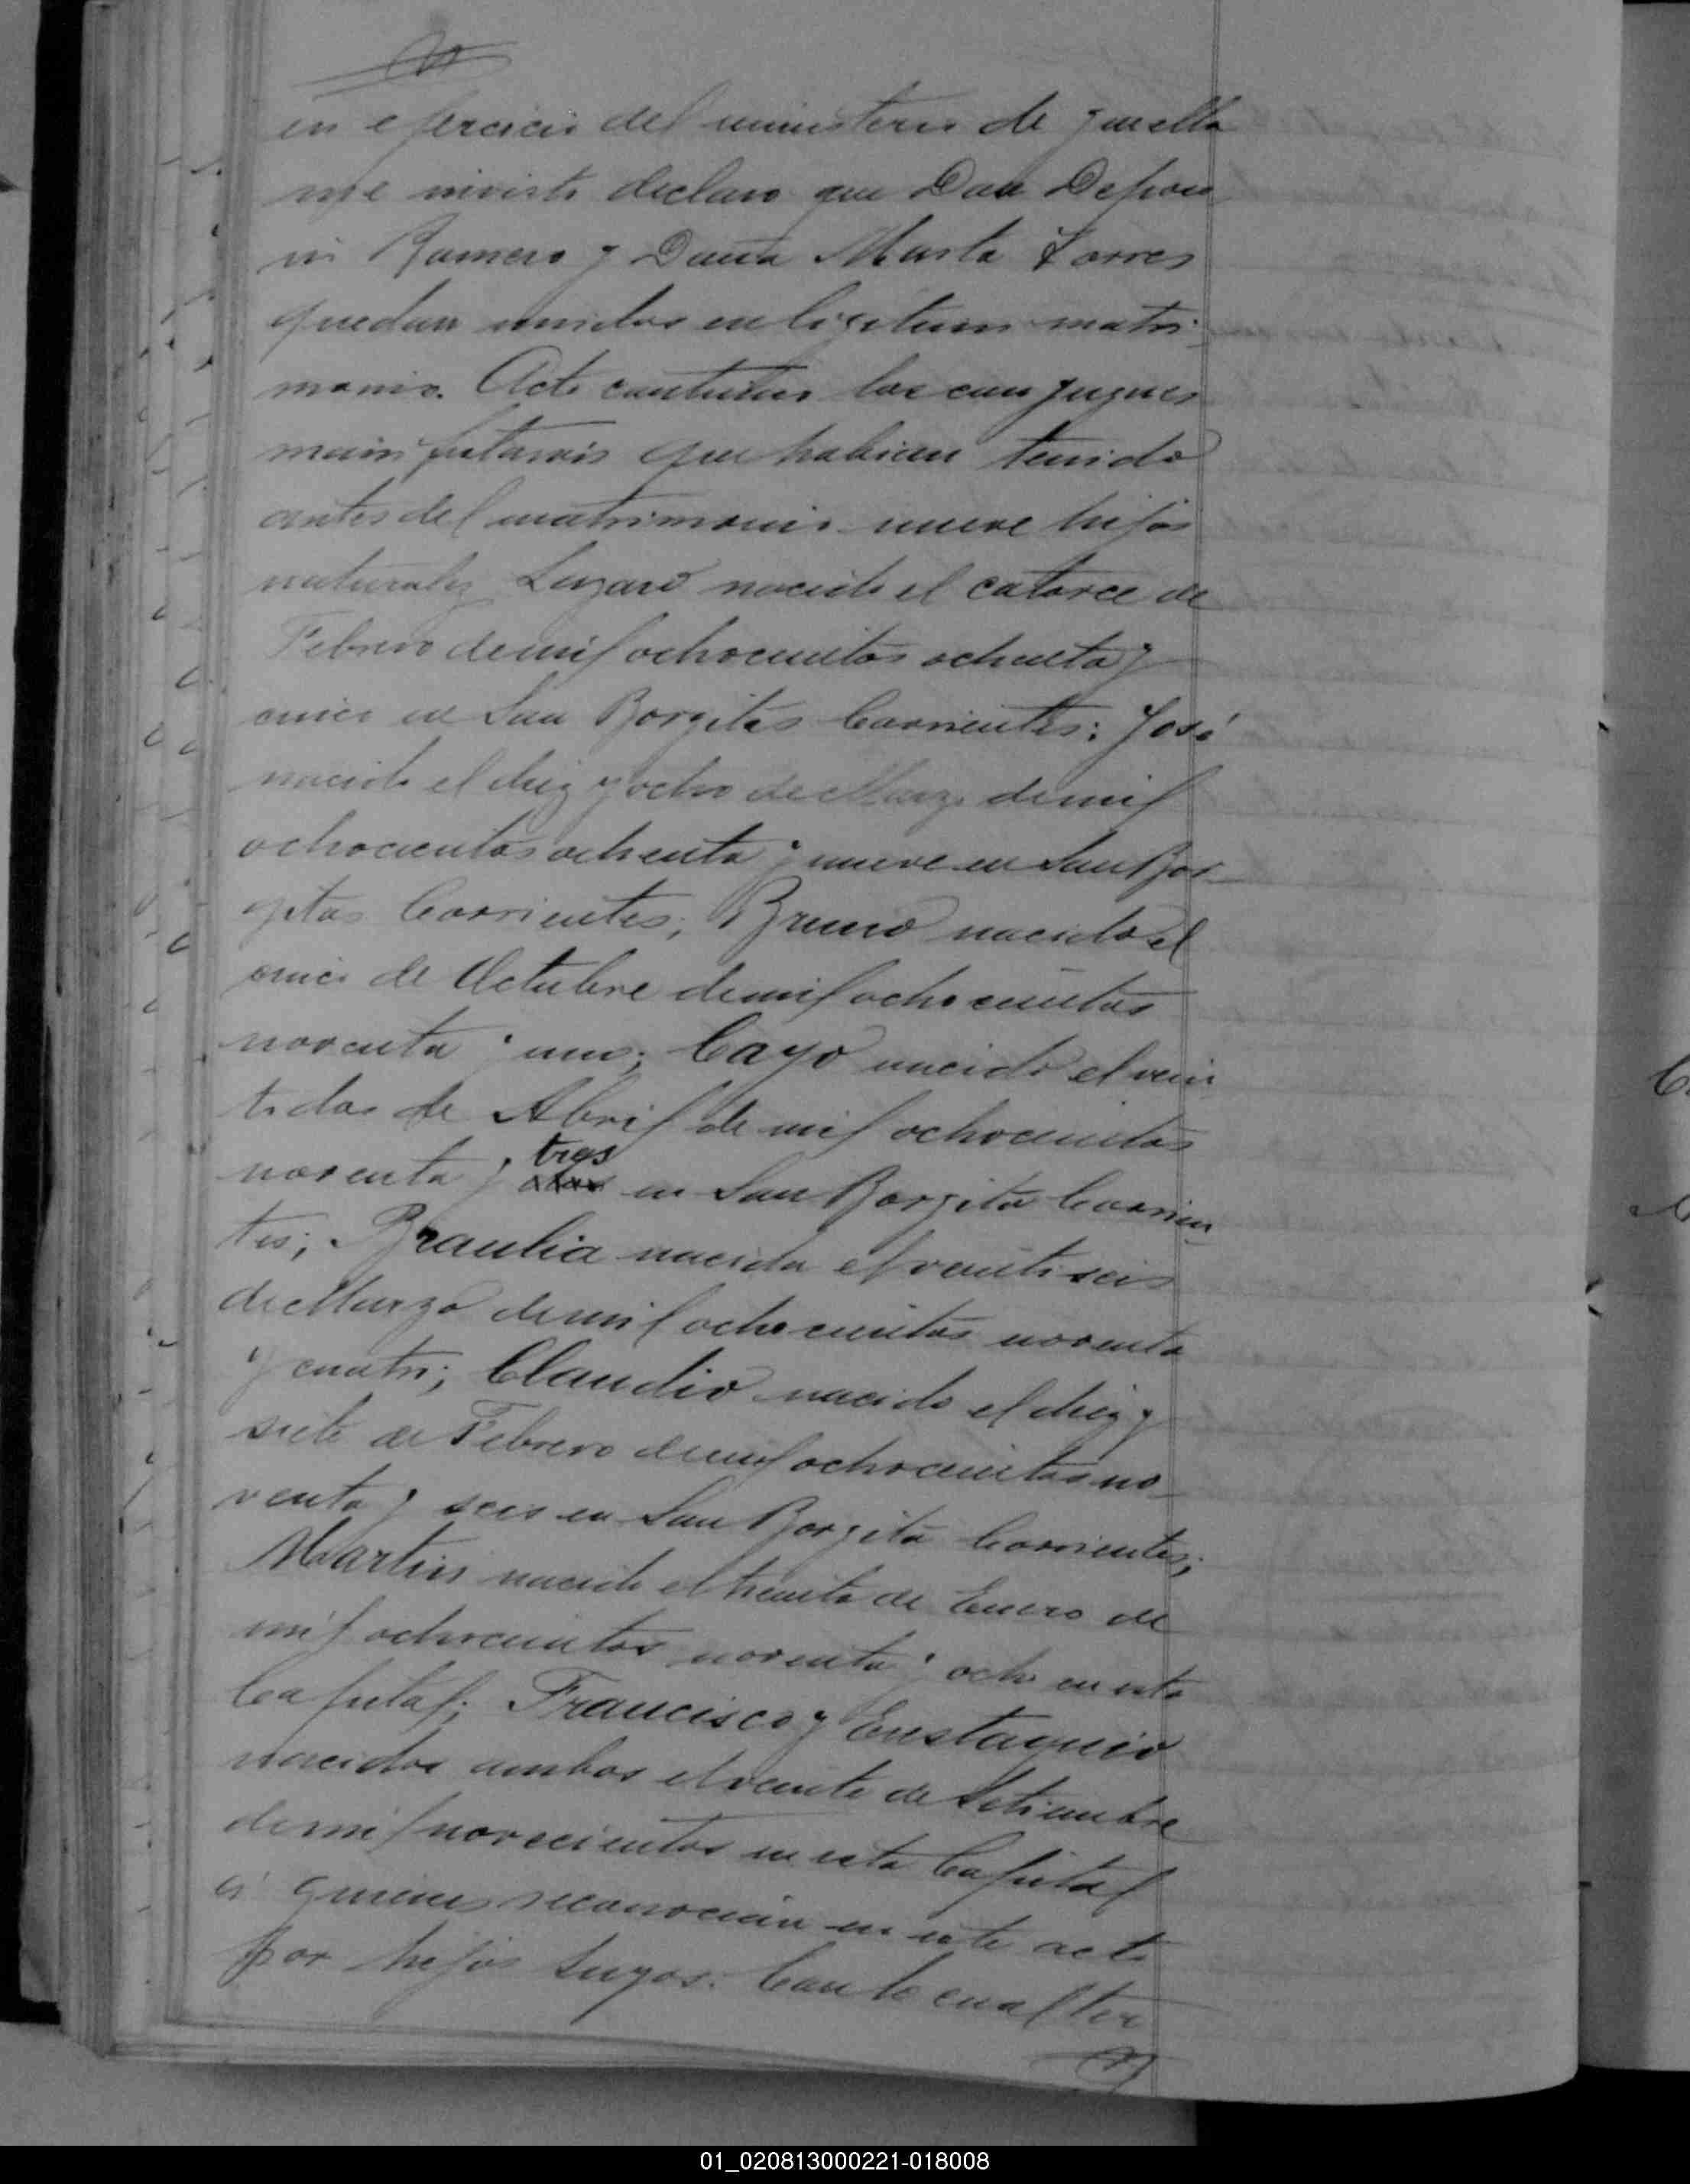 en ejercicio del ministerio de que ella
me inviste declaro que Don Depou
ni Romero y Doña Marta Torres
quedan unidos en lejitimo matri-
monio. Acto continuo los conyugues
manifestaron que habian tenido
antes del matrimonio nueve hijos
naturales Lazaro nacido el catorce de
Febrero de mil ochocientos ochenta y
cinco en San Borgitas Corrientes; José
nacido el diez y ocho de Marzo de mil
ochocientos ochenta y nueve en San Bor-
gitas Corrientes; Bruno nacido el
cinco de Octubre de mil ochocientos
noventa y uno; Cayo nacido el vein
tidos de Abril de mil ochocientos
tres
noventa y en San Borgita Corrien
tes; Braulia nacida el veintiseis
de Marzo de mil ochocientos noventa
y cuatro; Claudio nacido el diez y
siete de Febrero de mil ochocientos no-
venta y seis en San Borgita Corrientes;
Martin nacido el treinta de Enero de
mil ochocientos noventa y ocho en esta
Capital; Francisco y Eustaquio
nacidos ambos el veinte de Setiembre
de mil novecientos en esta Capital
á quienes reconocian en este acto
por hijos suyos. Con lo cual ter
01_020813000221-018008